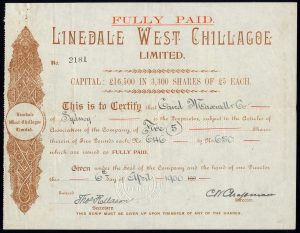 FULLY PAID.
LINEDALE WEST CHILLAGOE
LIMITED.
No. 2181
CAPITAL: £16,500 IN 3,300 SHARES OF £5 EACH.
This is to Certify that
of Sydney is the Proprietor, subject to the Articles of
Association of the Company, of Five (5) Shares
therein of Five Pounds each, No. 646 by No. 650
which are issued as FULLY PAID.
Given under the Seal of the Company and the hand of our Director
this 6th day of April 1900
Entered
Secretary.
Director.
THIS SCRIP MUST BE GIVEN UP UPON TRANSFER OF ANY OF THE SHARES.
Linedale
West Chillagoe
Limited.